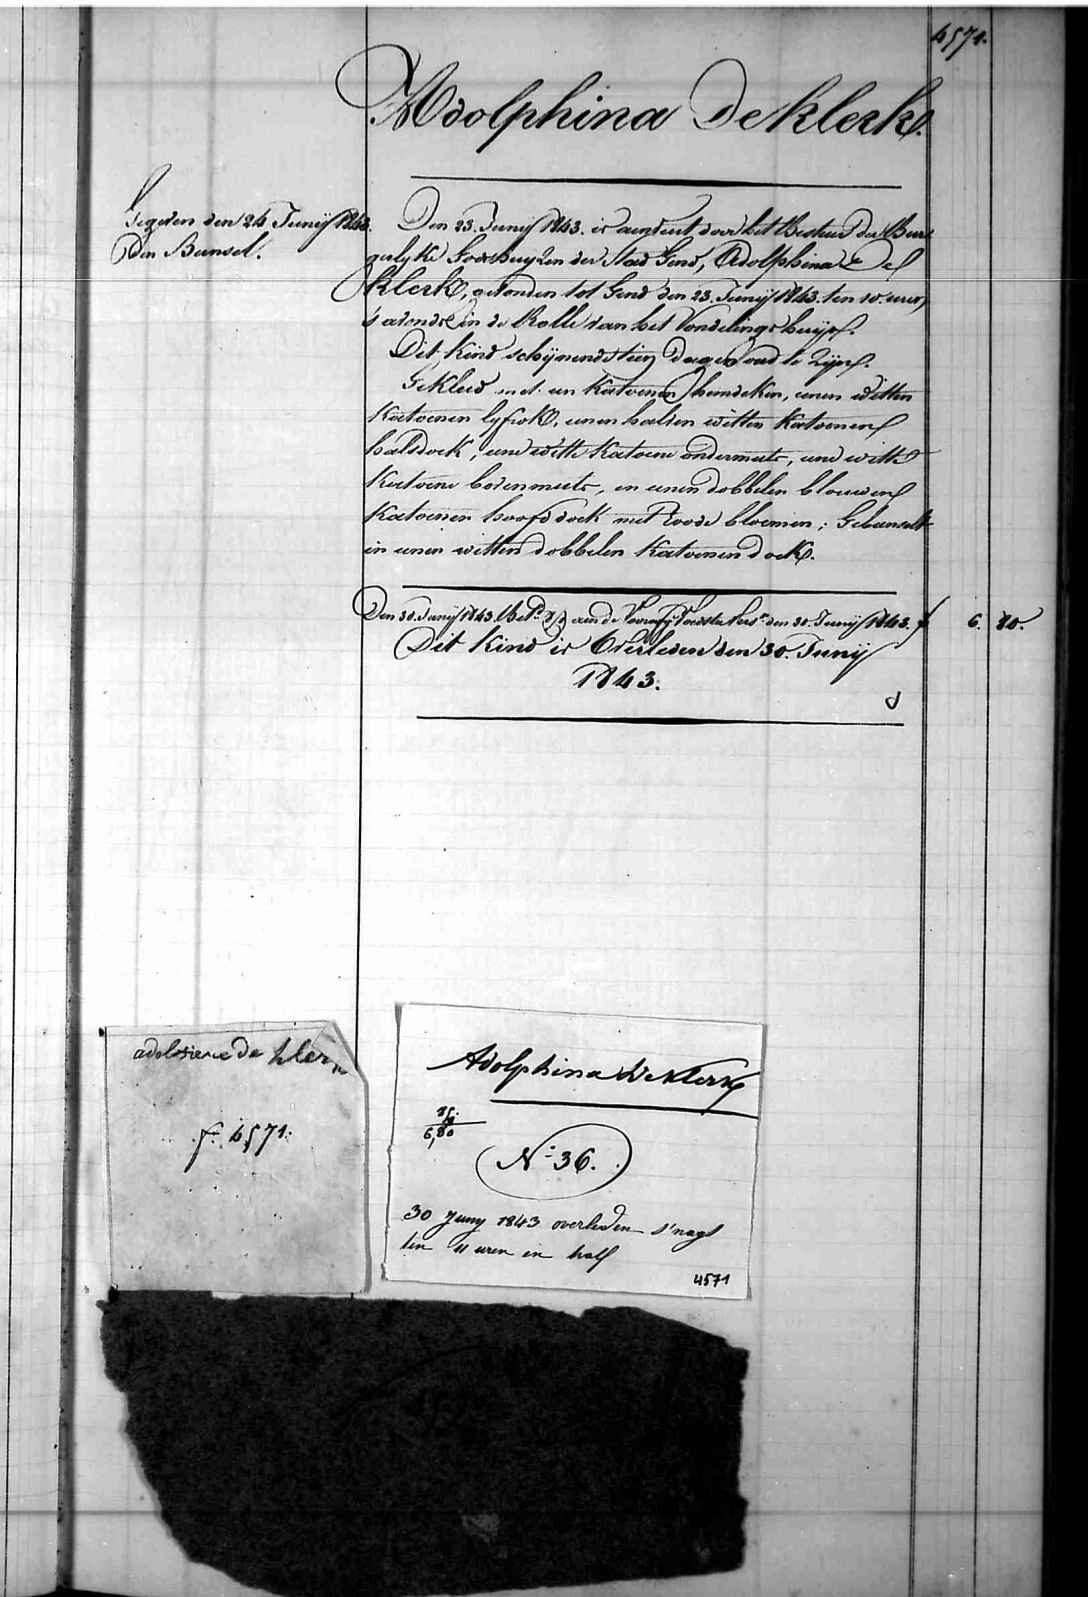 4571.
Adolphina De Klerk.
Gegeven den 24 Junij 1843.
Den Bunsel.
Den 23. Junij 1843. is aenveert door het Bestuer der Bur-
gerlyke Godshuyzen der Stad Gend, Adolphina De
Klerk, gevonden tot Gend den 23. Junij 1843. ten 10. uren
's avonds in de Rolle van het Vondelingshuys.
Dit Kind schynende tien Dagen oud te Zyn.
Gekleed met een Katoenen hemdeken, eenen witten
Katoenen lyfrok, eenen halven witten Katoenen
halsdoek, eene witte Katoene ondermuts, eene witte
Katoene bovenmuts, en eenen dobbelen blauwen
Katoenen hoofddoek met Roode bloemen; Gebunselt
in eenen witten dobbelen Katoenen doek.
Den 30. Junij 1843. aen de den 30. Junij 1843. f 6. 80.
Dit Kind is Overleden den 30. Junij
1843.
adolfiene de kler
f. 4571.
Adolphina De Klerk
6,80
N. 36.
30 Juny 1843 overleden s'nagt
ten 11 uren en half
4571